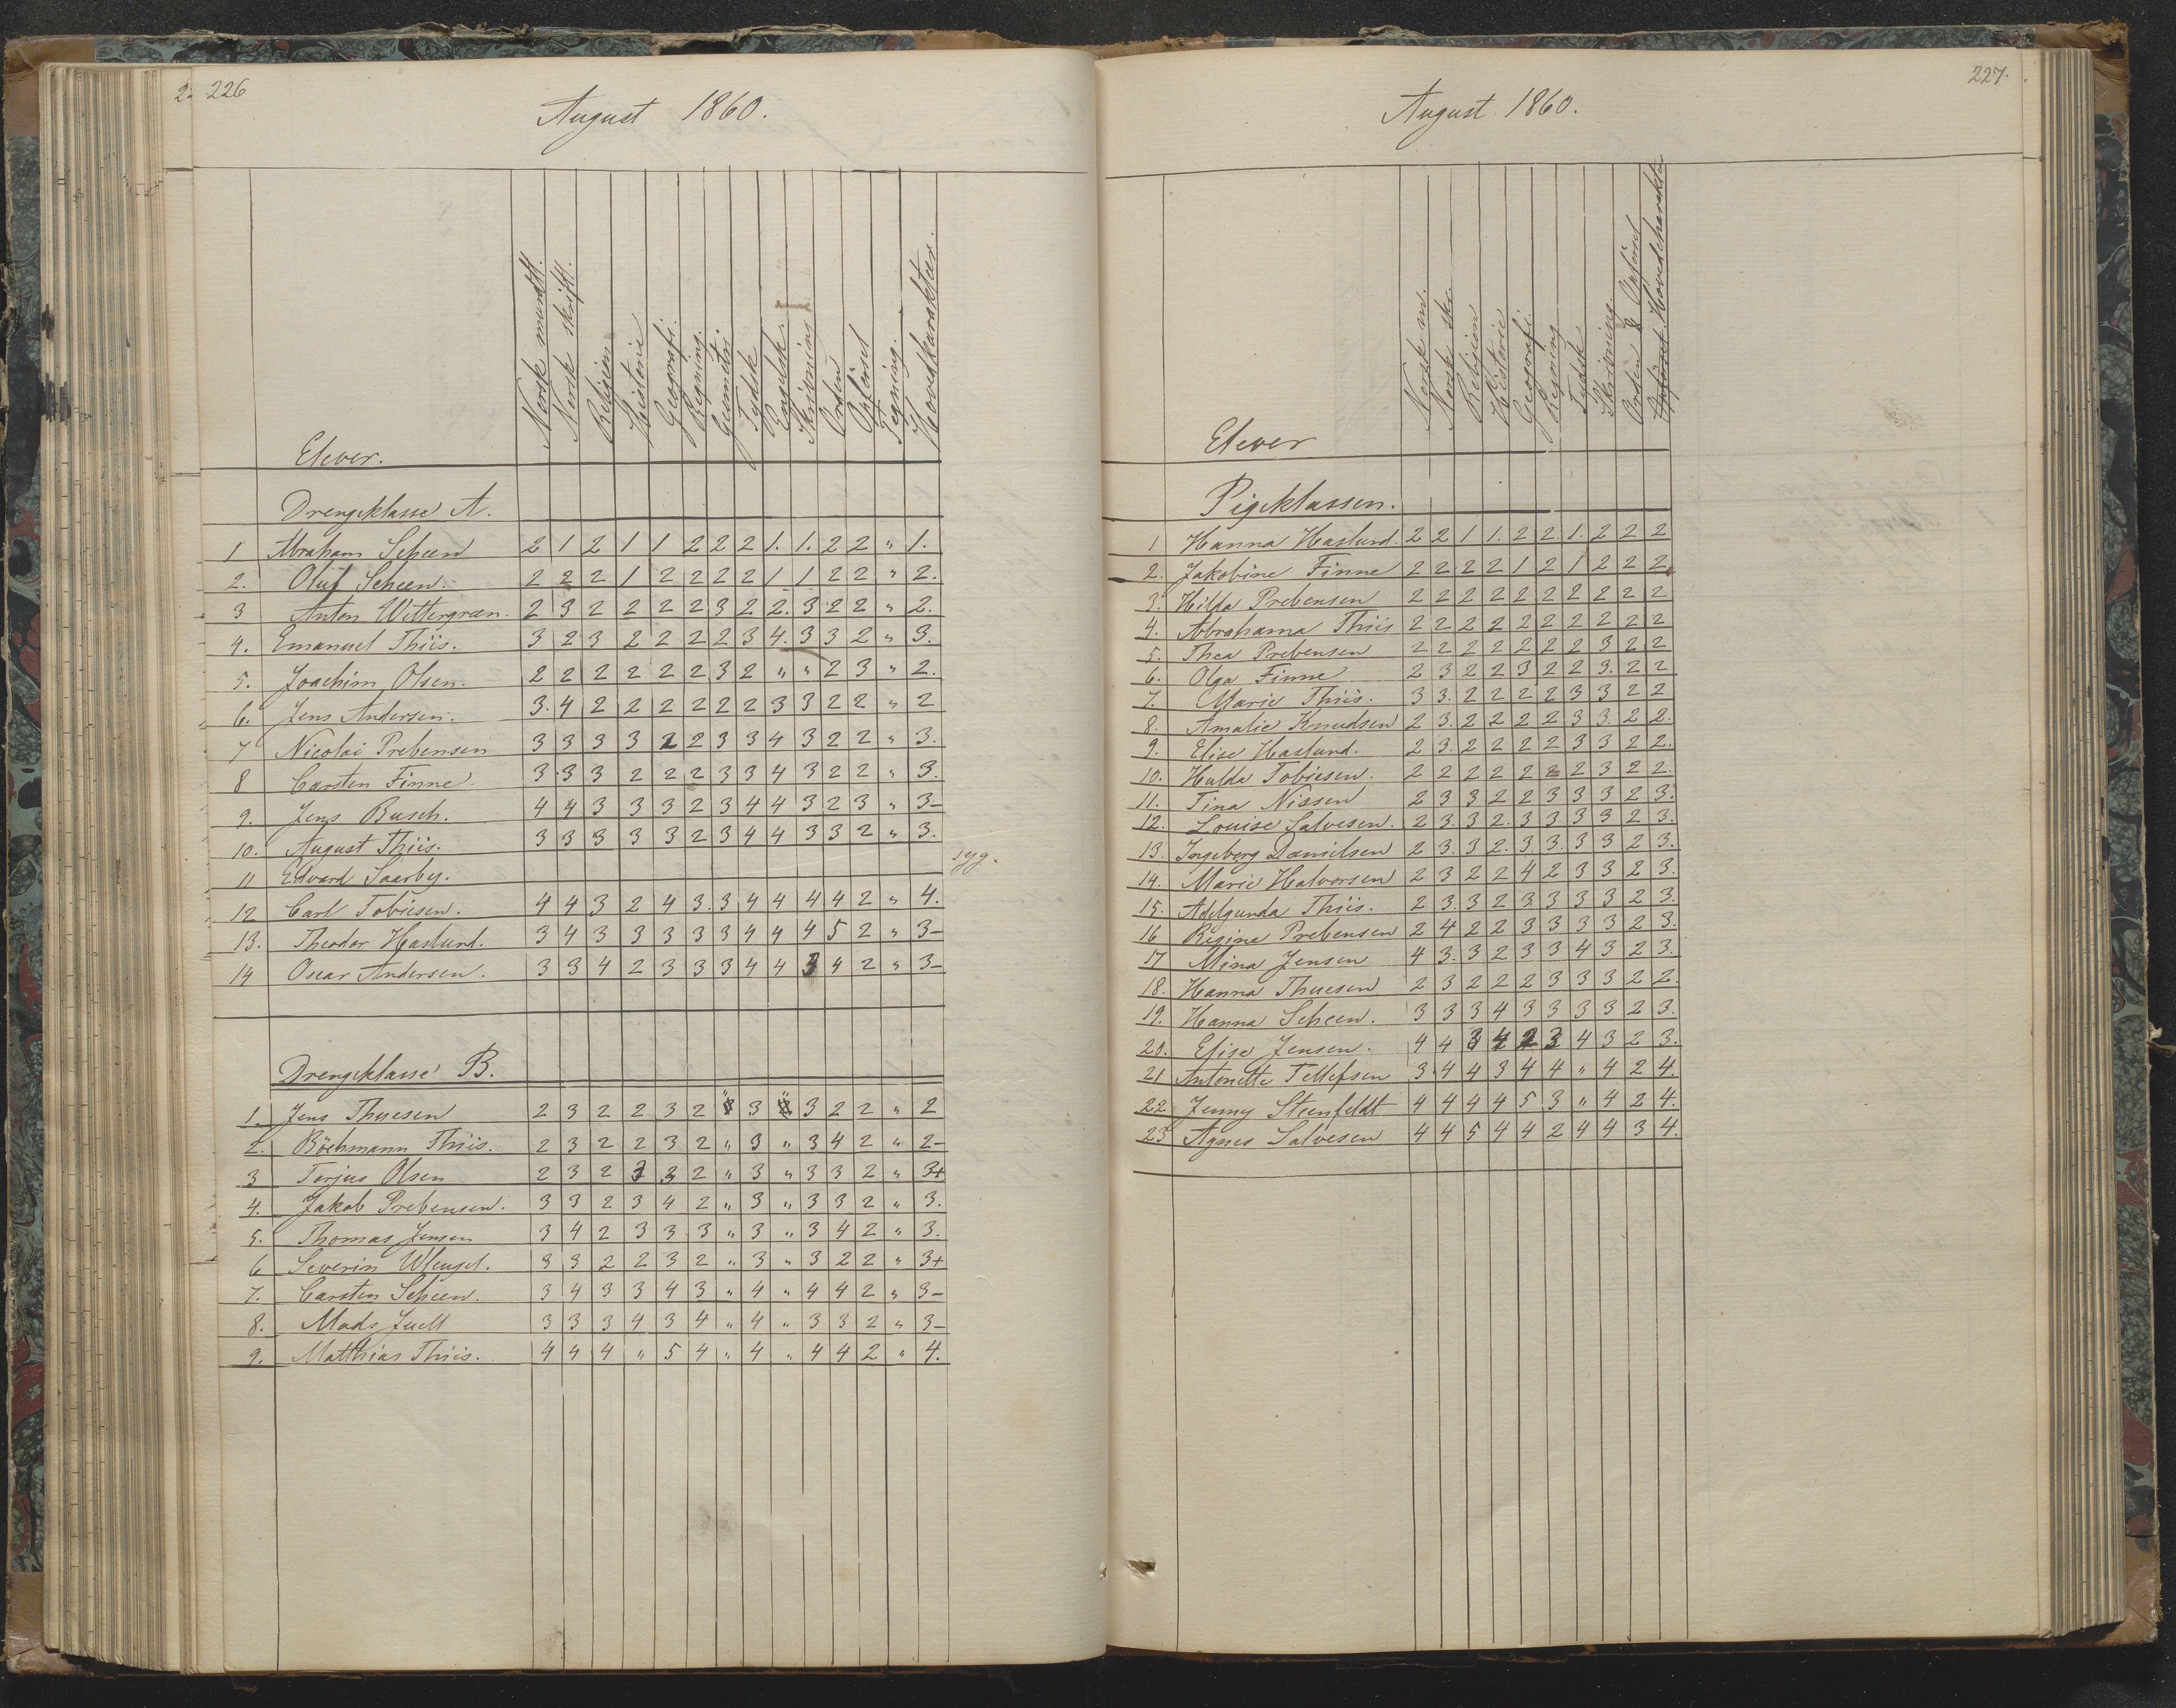 226
August 1860.
Elever. Norsk mundtl. Norsk skriftl. Religion Historie Geografi. Regning. Geometri Tydsk Engelsk. Skrivning Orden Opførsel Tegning. Hovedkarakter.
Drengeklasse A.
1 Abraham Scheen 2 1 2 1 1 2 2 2 1. 1. 2 2 " 1.
2. Oluf Scheen. 2 2 2 1 2 2 2 2 1 1 2 2 " 2.
3 Anton Wettergreen. 2 3 2 2 2 2 3 2 2. 3 2 2 " 2.
4. Emanuel Thiis. 3 2 3 2 2 2 2 3 4. 3 3 2 " 3.
5. Joachim Olsen. 2 2 2 2 2 2 3 2 " " 2 3 " 2.
6. Jens Andersen. 3. 4 2 2 2 2 2 2 3 3 2 2 " 2
7 Nicolai Prebensen 3 3 3 3 2 2 3 3 4 3 2 2 " 3.
8 Carsten Finne. 3. 3 3 2 2 2 3 3 4 3 2 2 " 3.
9. Jens Busch. 4 4 3 3 3 2 3 4 4 3 2 3 " 3-
10. August Thiis. 3 3 3 3 3 2 3 4 4 3 3 2 " 3.
11 Edvard Saarby. syg.
12 Carl Tobiesen. 4 4 3 2 4 3. 3 4 4 4 4 2 " 4.
13. Theodor Haslund. 3 4 3 3 3 3 3 4 4 4 5 2 " 3-
14 Oscar Andersen. 3 3 4 2 3 3 3 4 4 3 4 2 " 3-
Drengeklasse B.
1. Jens Thuesen 2 3 2 2 3 2 " 3 " 3 2 2 " 2
2. Böchmann Thiis. 2 3 2 2 3 2 " 3 " 3 4 2 " 2-
3 Terjus Olsen 2 3 2 3 3 2 " 3 " 3 3 2 " 3+
4. Jakob Prebensen. 3 3 2 3 4 2 " 3 " 3 3 2 " 3.
5. Thomas Jensen 3 4 2 3 3 3 " 3 " 3 4 2 " 3.
6 Severin 3 3 2 2 3 2 " 3 " 3 2 2 " 3+
7. Carsten Scheen. 3 4 3 3 4 3 " 4 " 4 4 2 " 3-
8. Mads Juell 3 3 3 4 3 4 " 4 " 3 3 2 " 3-
9. Matthias Thiis. 4 4 4 " 5 4 " 4 " 4 4 2 " 4.
227.
August 1860.
Elever Norsk m. Norsk skr. Religion Historie Geografi. Regning Tydsk Skrivning. Orden & Opförsel Opförsel. Hovedcharakter
Pigeklassen.
1 Hanna Haslund. 2 2 1 1. 2 2 1. 2 2 2
2. Jakobine Finne 2 2 2 2 1 2 1 2 2 2
3. Hilda Prebensen 2 2 2 2 2 2 2 2 2 2
4. Abrahama Thiis 2 2 2 2 2 2 2 2 2 2
5. Thea Prebensen 2 2 2 2 2 2 2 3 2 2
6. Olga Finne 2 3 2 2 3 2 2 3. 2 2
7. Marie Thiis. 3 3. 2 2 2 2 3 3 2 2
8. Amalie Knudsen 2 3. 2 2 2 2 3 3. 2 2.
9. Elise Haslund. 2 3. 2 2 2 2 3 3 2 2.
10. Hulda Tobiesen. 2 2 2 2 2 2 2 3 2 2.
11. Tina Nissen 2 3 3 2 2 3 3 3 2 3.
12. Louise Salvesen. 2 3. 3 2. 3 3 3 3 2 3.
13. Ingeborg Danielsen 2 3. 3 2. 3. 3. 3 3 2 3.
14. Marie Halvorsen 2 3 2 2 4 2 3 3 2 3.
15. Adelgunda Thiis. 2 3. 3 2 3 3 3 3 2 3.
16 Regine Prebensen 2 4 2 2 3 3 3 3 2 3.
17 Mina Jensen 4 3. 3 2 3 3 4 3 2 3.
18. Hanna Thuesen 2 3 2 2 2 3 3 3 2 2.
19. Hanna Scheen. 3 3 3 4 3 3 3 3 2 3.
20. Elise Jensen. 4 4 3 4 2 3 4 3 2 3.
21 Antonette Tellefsen 3 4 4 3 4 4 " 4 2 4.
22 Jenny Steenfeldt 4 4 4 4 5 3 " 4 2 4.
23 Agnes Salvesen 4 4 5 4 4 2 4 4 3 4.